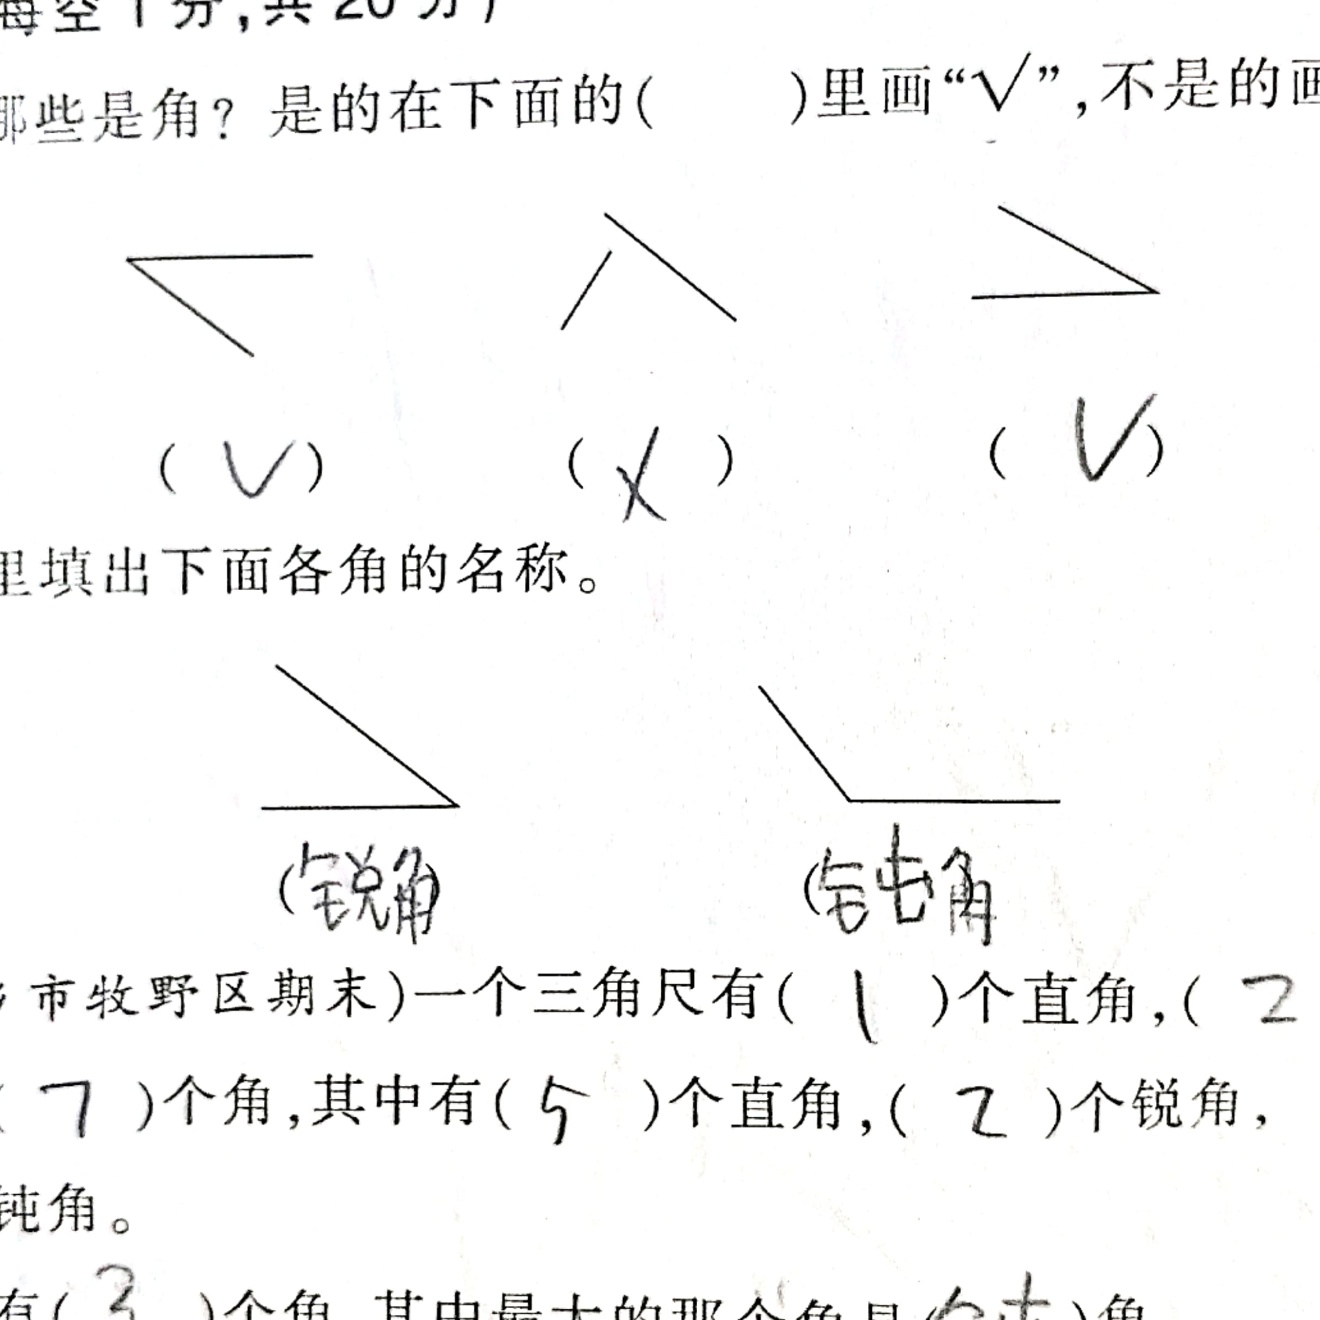 每空1分,共20分)
哪些是角?是的在下面的(  )里画“√”,不是的画
(√) (×) (√)
里填出下面各角的名称。
(锐角) (钝角)
市牧野区期末)一个三角尺有(1)个直角,(2
(7)个角,其中有(5)个直角,(2)个锐角,
钝角。
有(3)个角,其中最大的那个角是(钝)角